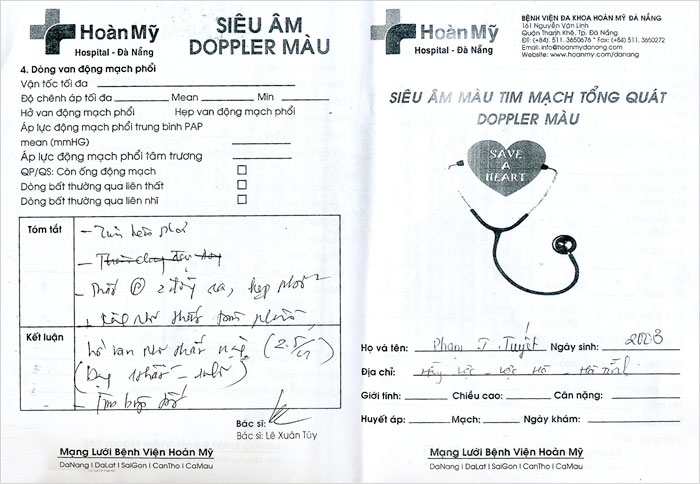 Hoàn Mỹ
Hospital - Đà Nẵng
SIÊU ÂM
DOPPLER MÀU
4. Dòng van động mạch phổi
Vận tốc tối đa
Độ chênh áp tối đa Mean Min
Hở van động mạch phổi Hẹp van động mạch phổi
Áp lực động mạch phổi trung bình PAP
mean (mmHG)
Áp lực động mạch phổi tâm trương
QP/QS: Còn ống động mạch
Dòng bất thường qua liên thất
Dòng bất thường qua liên nhĩ
Tóm tắt
Kết luận
hở van (2.5/4)
Bác sĩ:
Bác sĩ: Lê Xuân Túy
Mạng Lưới Bệnh Viện Hoàn Mỹ
DaNang I DaLat I SaiGon I CanTho I CaMau
Hoàn Mỹ
Hospital - Đà Nẵng
BỆNH VIỆN ĐA KHOA HOÀN MỸ ĐÀ NẴNG
161 Nguyễn Văn Linh
Quận Thanh Khê, Tp. Đà Nẵng
ĐT: (+84). 511. 3650676 * Fax: (+84). 511. 3650272
Email: info@hoanmydanang.com
Website: www.hoanmydanang.com/
SIÊU ÂM MÀU TIM MẠCH TỔNG QUÁT
DOPPLER MÀU
SAVE
A
HEART
Họ và tên: Phạm T. Tuyết Ngày sinh: 2003
Địa chỉ: Lộc Hà - Hà Tĩnh
Giới tính: Chiều cao: Cân nặng:
Huyết áp: Mạch: Ngày khám:
Mạng Lưới Bệnh Viện Hoàn Mỹ
DaNang I DaLat I SaiGon I CanTho I CaMau